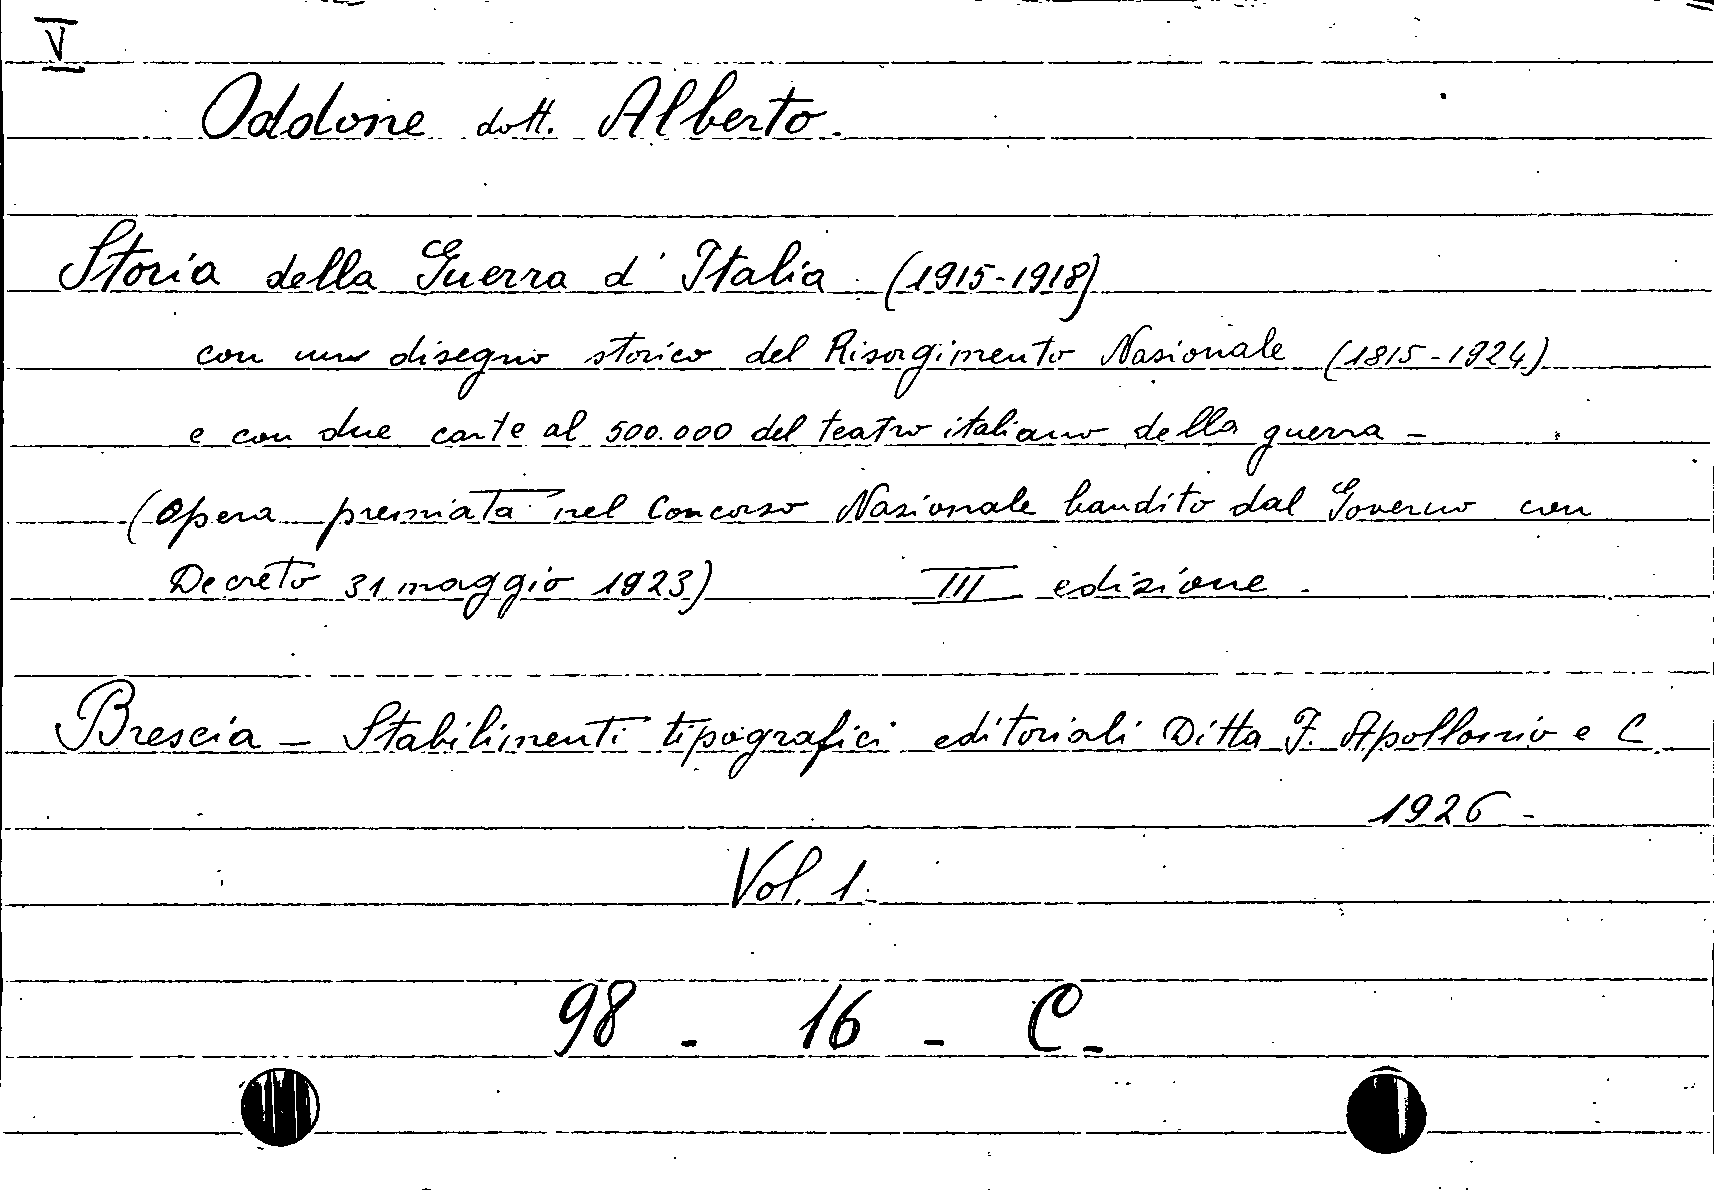 V
Oddone dott. Alberto.
Storia della Guerra d'Italia (1915-1918)
con uno disegno storico del Risorgimento Nazionale (1815-1924)
e con due carte al 500.000 del teatro italiano della guerra -
(Opera premiata nel Concorso Nazionale bandito dal Governo con
Decreto 31 maggio 1923) III edizione.
Brescia - Stabilimenti tipografici editoriali Ditta F. Apollonio e C.
1926 -
Vol. 1.
98 - 16 - C -